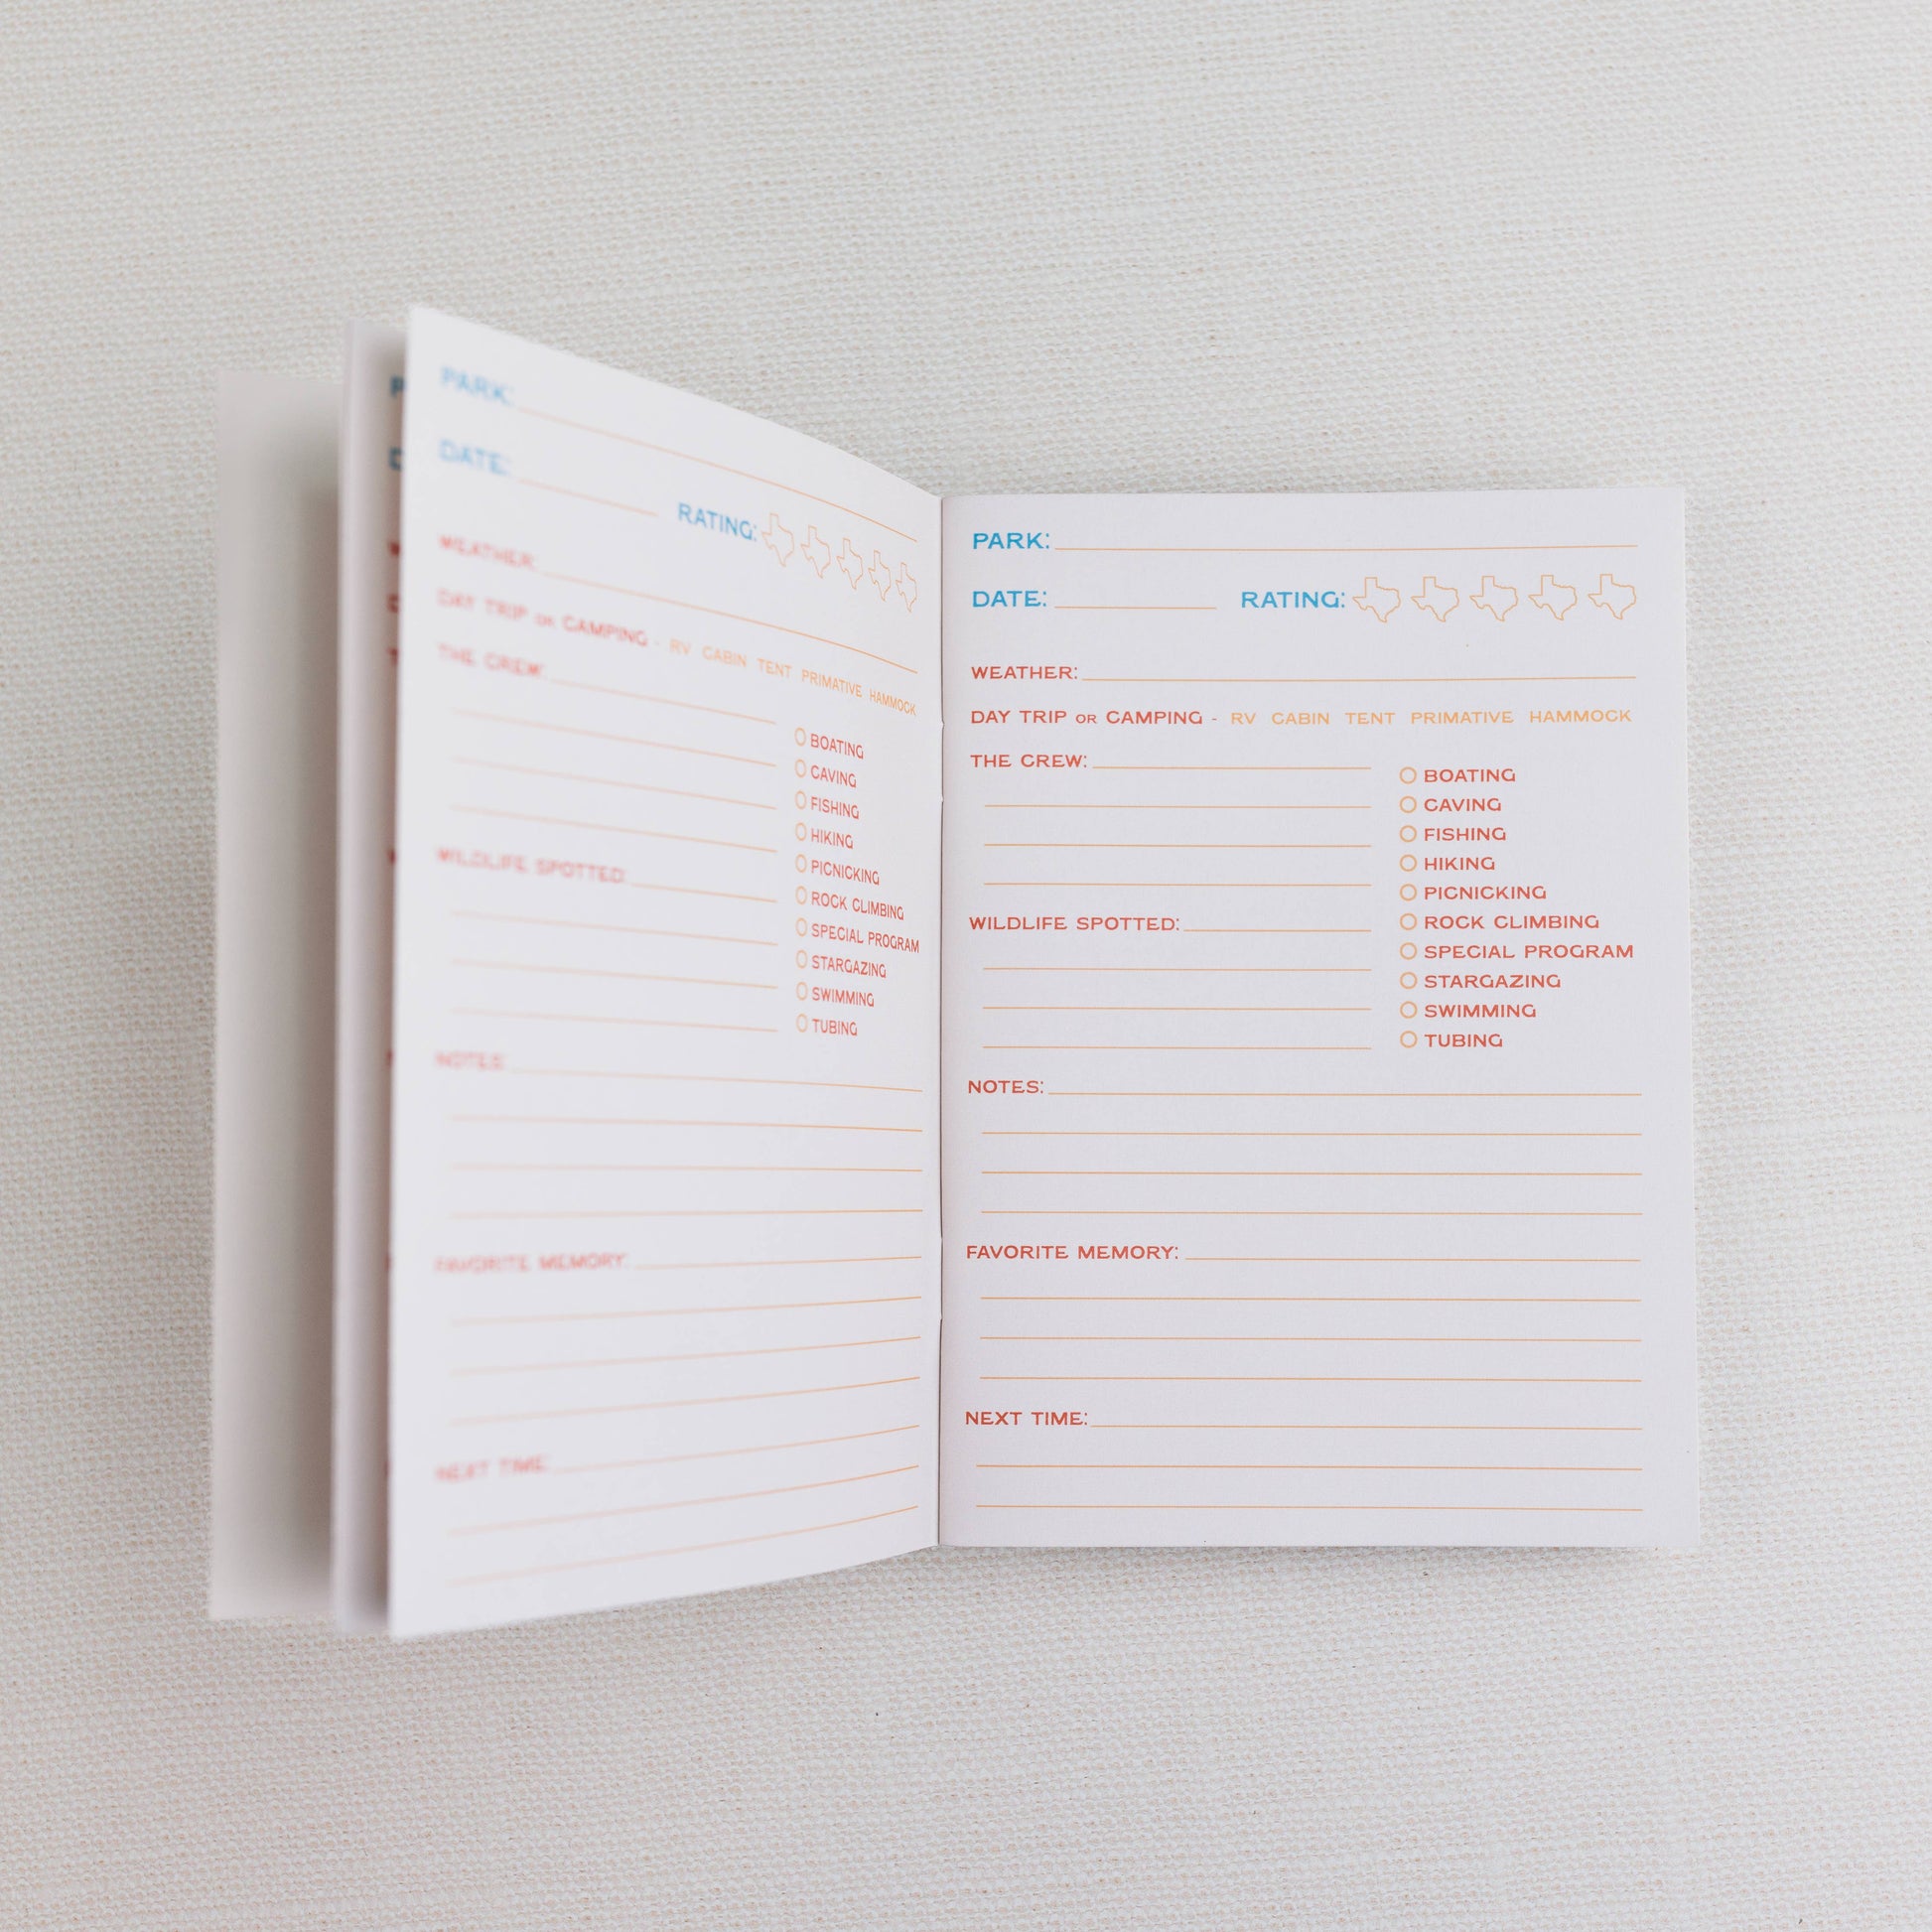 PARK:
DATE: RATING:
WEATHER:
DAY TRIP OR CAMPING - RV CABIN TENT PRIMATIVE HAMMOCK
THE CREW:
BOATING
CAVING
FISHING
HIKING
PICNICKING
ROCK CLIMBING
WILDLIFE SPOTTED:
SPECIAL PROGRAM
STARGAZING
SWIMMING
TUBING
NOTES:
FAVORITE MEMORY:
NEXT TIME:
PARK:
DATE: RATING:
WEATHER:
DAY TRIP OR CAMPING - RV CABIN TENT PRIMATIVE HAMMOCK
THE CREW:
BOATING
CAVING
FISHING
HIKING
PICNICKING
ROCK CLIMBING
WILDLIFE SPOTTED:
SPECIAL PROGRAM
STARGAZING
SWIMMING
TUBING
NOTES:
FAVORITE MEMORY:
NEXT TIME: